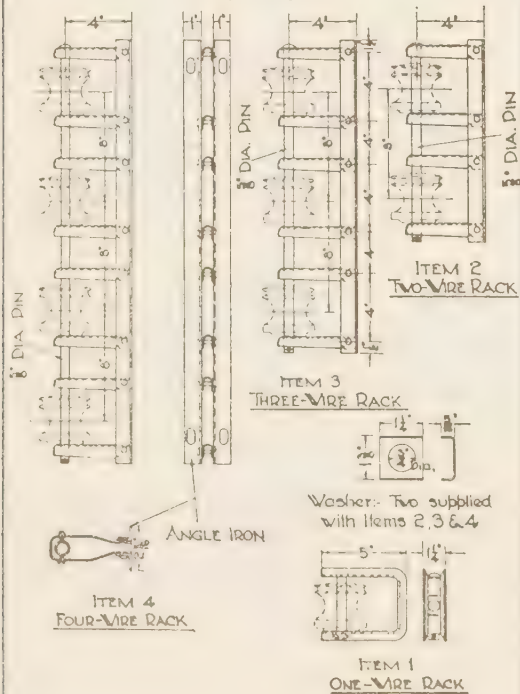 4"
1"
1"
4"
4"
8"
8"
8"
5/8" DIA. PIN
5/8" DIA. PIN
8"
8"
4"
4"
4"
4"
4"
8"
5/8" DIA. PIN
ITEM 2
TWO-WIRE RACK
ITEM 3
THREE-WIRE RACK
1 1/4"
Dia.
Washer:- Two supplied
with Items 2,3 & 4
ANGLE IRON
5"
1 1/4"
ITEM 4
FOUR-WIRE RACK
ITEM 1
ONE-WIRE RACK